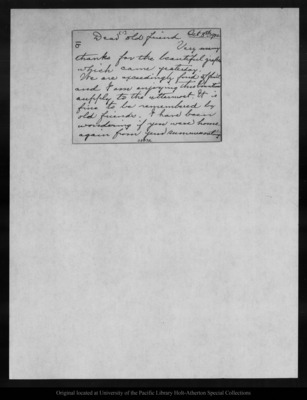 Dear old friend
Very many
thanks for the beautiful grapes
which came yesterday.
We are exceedingly fond of fruit
and I am enjoying this
supply to the uttermost. It is
fine to be remembered by
old friends. I have been
wondering if you were home
again from your summer
Original located at University of the Pacific Library Holt-Atherton Special Collections